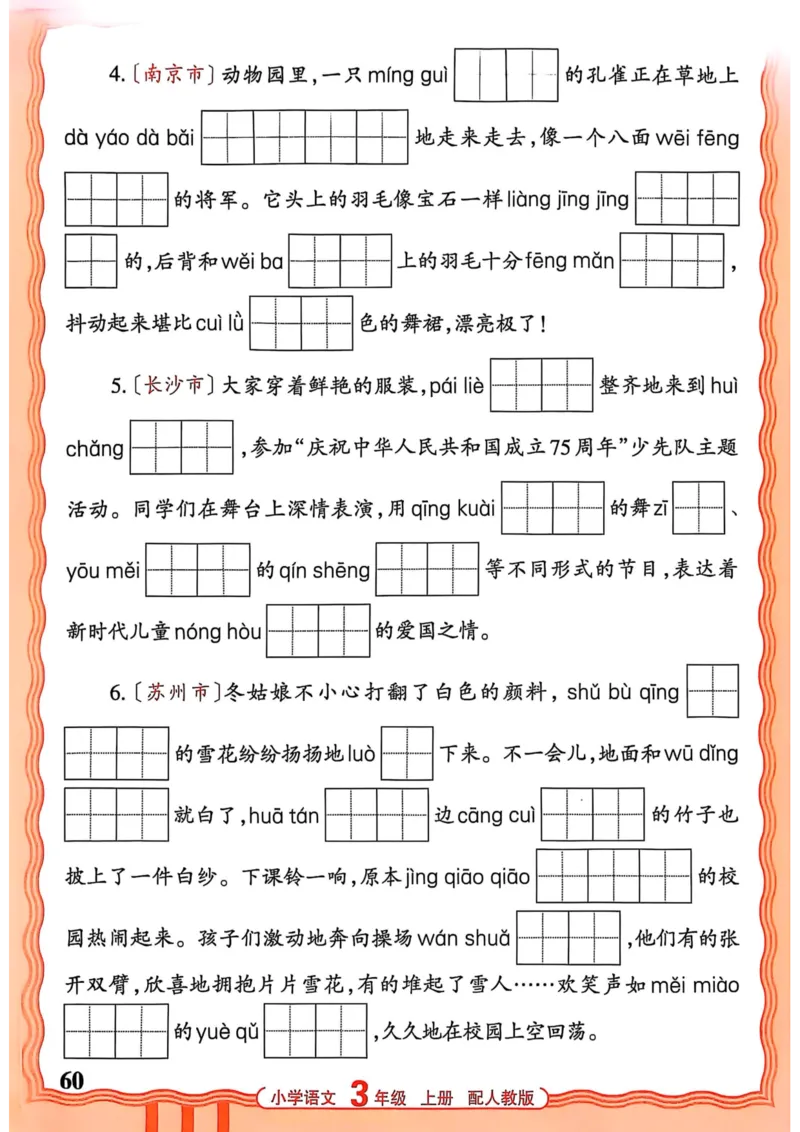 4.〔南京市〕动物园里,一只míng guì 的孔雀正在草地上
dà yáo dà bǎi 地走来走去,像一个八面wēi fēng
的将军。它头上的羽毛像宝石一样liàng jīng jīng
的,后背和wěi ba 上的羽毛十分fēng mǎn ,
抖动起来堪比cuì lǜ 色的舞裙,漂亮极了!
5.〔长沙市〕大家穿着鲜艳的服装,pái liè 整齐地来到huì
chǎng ,参加“庆祝中华人民共和国成立75周年”少先队主题
活动。同学们在舞台上深情表演,用qīng kuài 的舞zī 、
yōu měi 的qín shēng 等不同形式的节目,表达着
新时代儿童nóng hòu 的爱国之情。
6.〔苏州市〕冬姑娘不小心打翻了白色的颜料, shǔ bù qīng
的雪花纷纷扬扬地luò 下来。不一会儿,地面和wū dǐng
就白了,huā tán 边cāng cuì 的竹子也
披上了一件白纱。下课铃一响,原本jìng qiāo qiāo 的校
园热闹起来。孩子们激动地奔向操场wán shuǎ ,他们有的张
开双臂,欣喜地拥抱片片雪花,有的堆起了雪人……欢笑声如měi miào
的yuè qǔ ,久久地在校园上空回荡。
60
小学语文 3年级 上册 配人教版